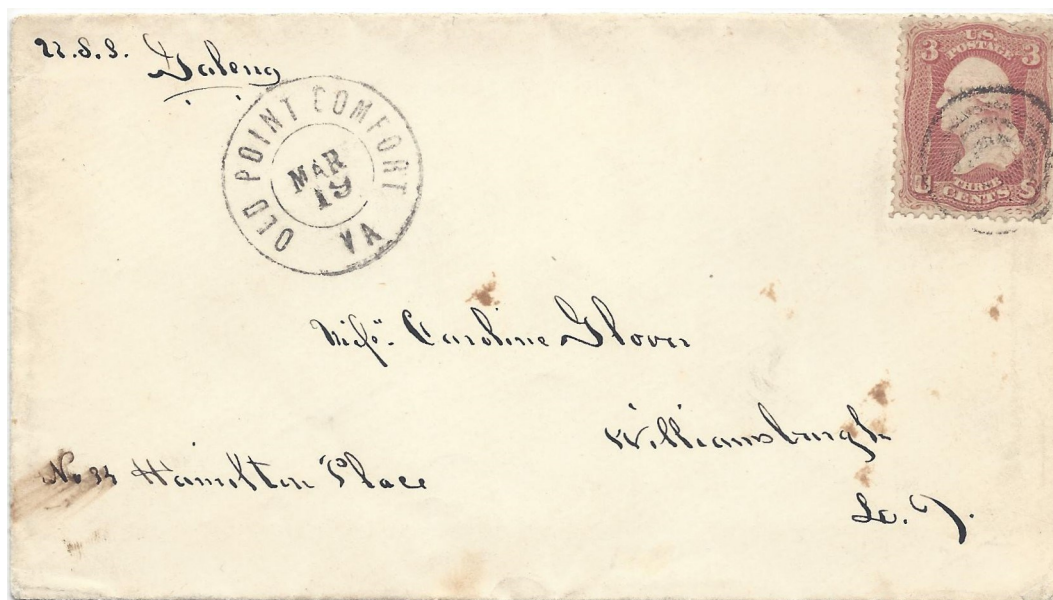 U.S.S. Galena
OLD POINT COMFORT
MAR
19
VA
U.S.
POSTAGE
3 3
THREE
CENTS
U S
Miss. Caroline Glover
Williamsburgh
No Hamilton Place
L. I.